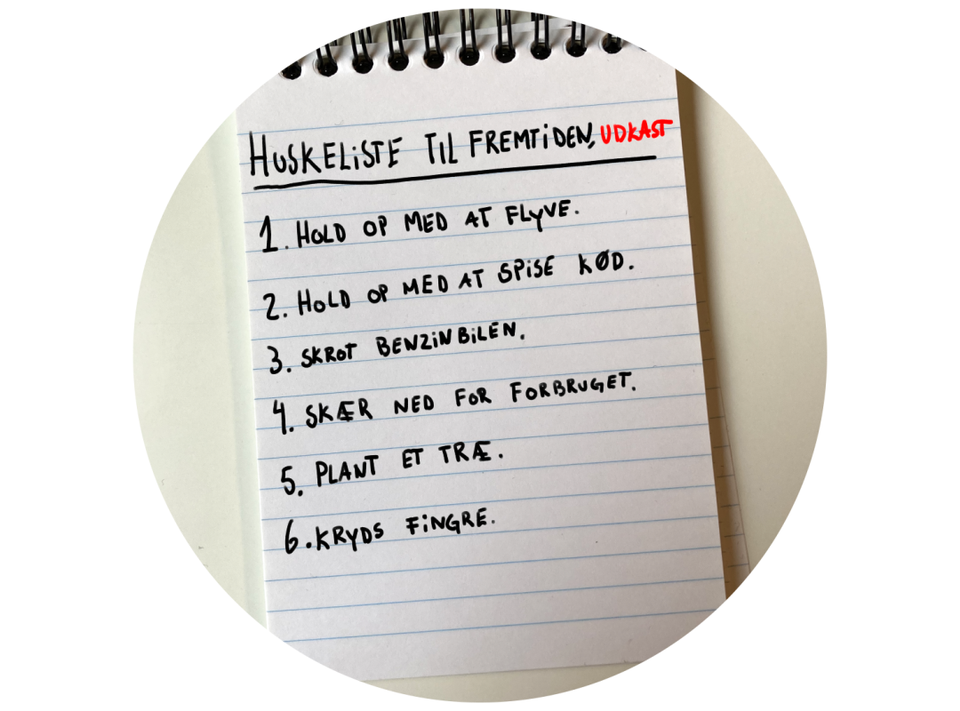 HUSKELISTE TIL FREMTIDEN, UDKAST
1. HOLD OP MED AT FLYVE.
2. HOLD OP MED AT SPISE KØD.
3. SKROT BENZINBILEN.
4. SKÆR NED FOR FORBRUGET.
5. PLANT ET TRÆ.
6. KRYDS FINGRE.